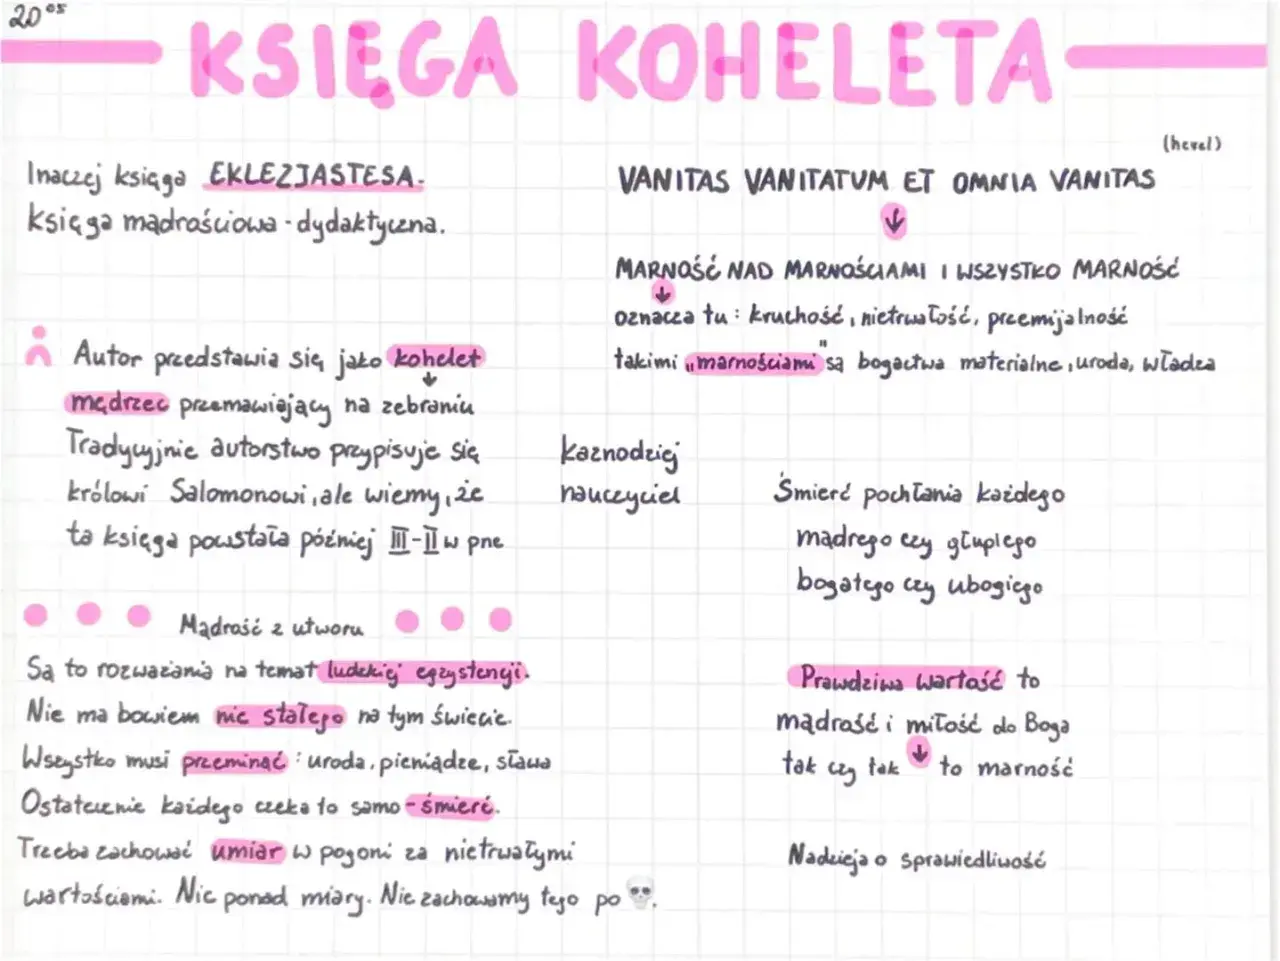 20⁰⁵
KSIĘGA KOHELETA
Inaczej księga EKLEZJASTESA.
Księga mądrościowa - dydaktyczna.
Autor przedstawia się jako kohelet
↓
mędrzec przemawiający na zebraniu
Tradycyjnie autorstwo przypisuje się
królowi Salomonowi, ale wiemy, że
ta księga powstała później III-II w pne
kaznodziej
nauczyciel
Mądrość z utworu
Są to rozważania na temat ludzkiej egzystencji.
Nie ma bowiem nic stałego na tym świecie.
Wszystko musi przeminąć : uroda, pieniądze, sława
Ostatecznie każdego czeka to samo - śmierć.
Trzeba zachować umiar w pogoni za nietrwałymi
wartościami. Nic ponad miary. Nie zachowamy tego po 💀.
(hevel)
VANITAS VANITATUM ET OMNIA VANITAS
↓
MARNOŚĆ NAD MARNOŚCIAMI I WSZYSTKO MARNOŚĆ
↓
oznacza tu : kruchość, nietrwałość, przemijalność
takimi „marnościami" są bogactwa materialne, uroda, władza
Śmierć pochłania każdego
mądrego czy głupiego
bogatego czy ubogiego
Prawdziwa wartość to
mądrość i miłość do Boga
tak czy tak ↓ to marność
Nadzieja o sprawiedliwość